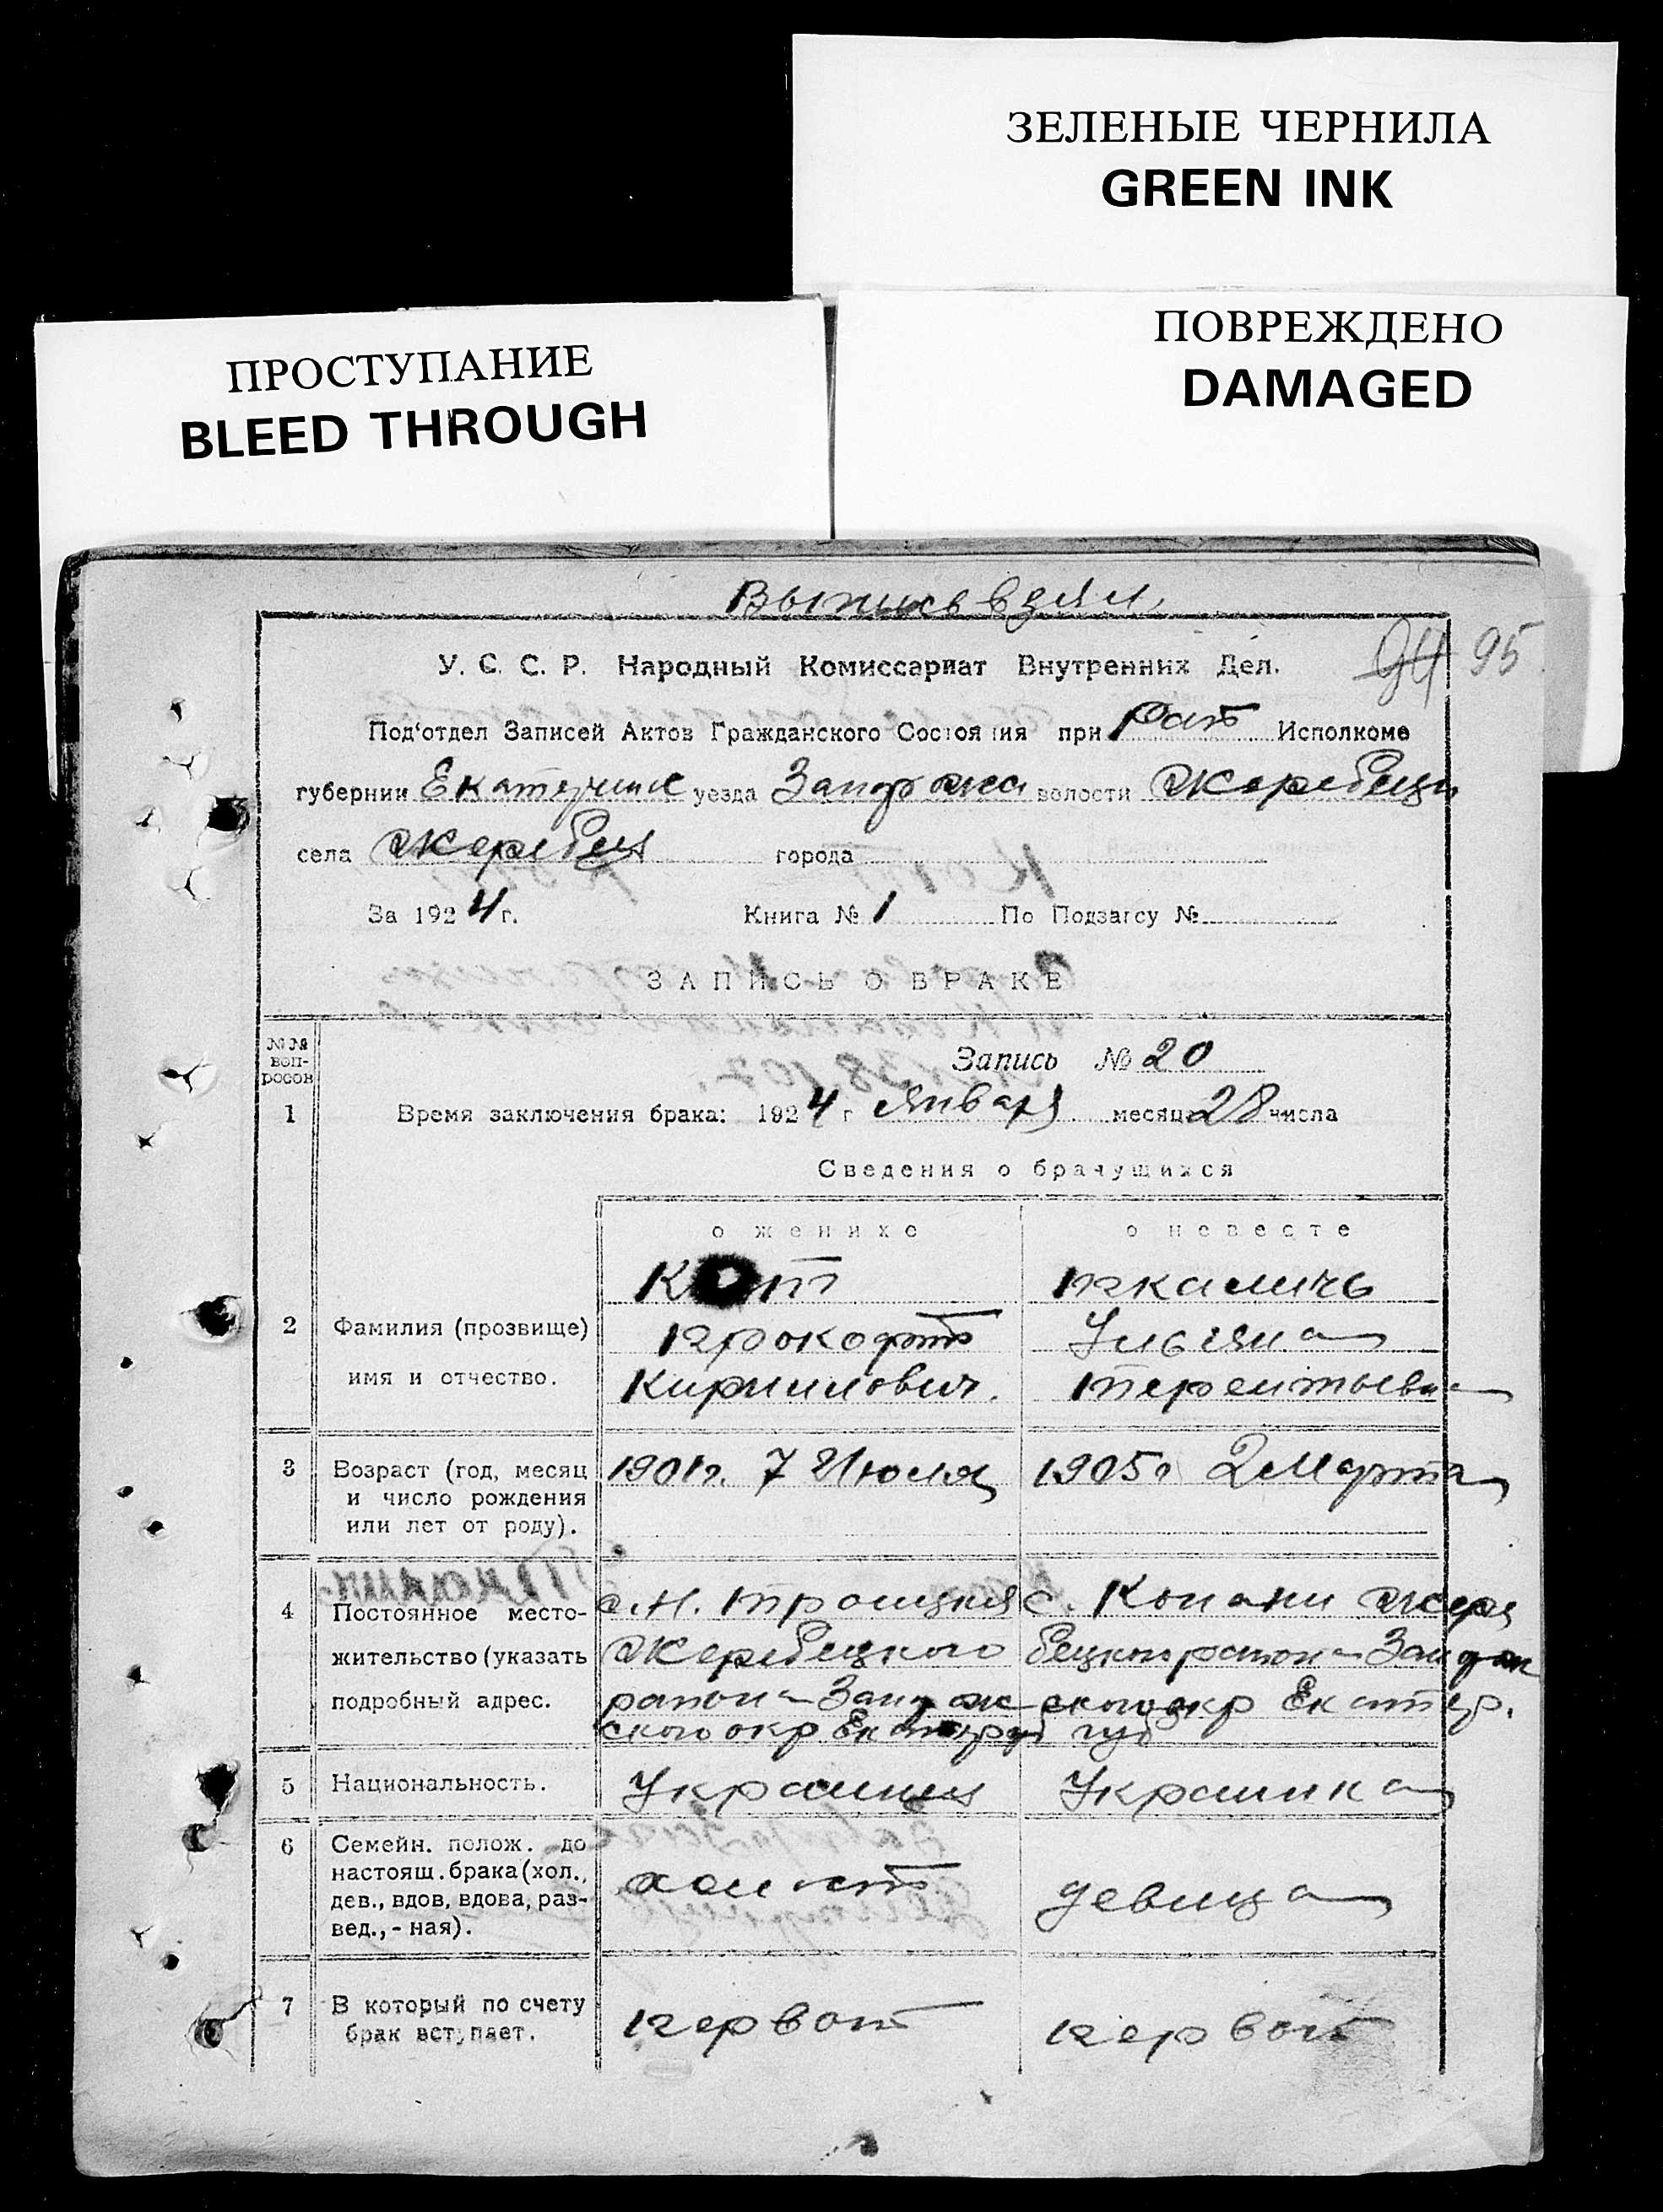 ЗЕЛЕНЫЕ ЧЕРНИЛА
GREEN INK
ПОВРЕЖДЕНО
DAMAGED
ПРОСТУПАНИЕ
BLEED THROUGH
Выпись взял
У. С. С. Р. Народный Комиссариат Внутренних Дел.
94 95
Под'отдел Записей Актов Гражданского Состояния при Рай Исполкоме
губернии Екатерин уезда Запорож волости Жеребецк
села Жеребец города
За 1924 г. Книга № 1 По Подзагсу №
ЗАПИСЬ О БРАКЕ
№№ вопросов
Запись № 20
1 Время заключения брака: 1924 г Января месяц 28 числа
Сведения о брачущихся
о женихе о невесте
Кот Ткалич
2 Фамилия (прозвище) Прокофий Ульяна
имя и отчество. Кириллович. Терентьевна
3 Возраст (год, месяц 1901 г. 7 Июля 1905 г 2 Марта
и число рождения
или лет от роду).
4 Постоянное место- с. Н. Троицкая с. Копани Жере
жительство (указать Жеребецкого бецкого района Запорож
подробный адрес. района Запорож ского окр Екатер.
ского окр Екатер губ губ
5 Национальность. Украинец Украинка
6 Семейн. полож. до
настоящ. брака (хол., холост девица
дев., вдов, вдова, раз-
вед., - ная).
7 В который по счету первый первый
брак вступает.